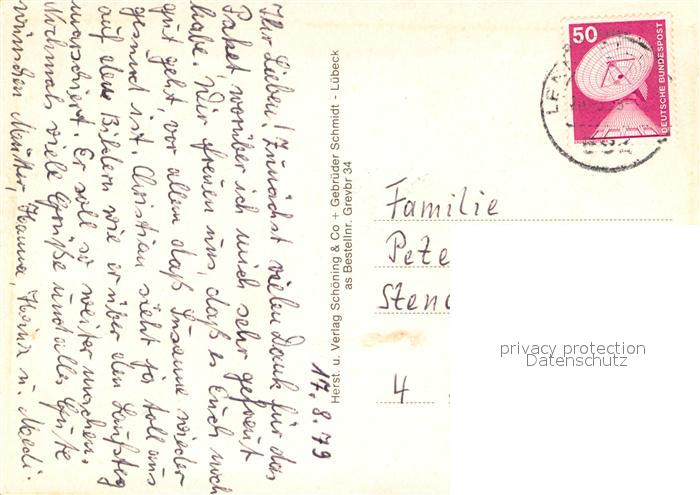 Ihr Lieben! Zunächst vielen Dank für das
Paket worüber ich mich sehr gefreut
habe. Wir freuen uns, daß es Euch noch
gut geht, vor allem daß Susanne wieder
gesund ist. Christian sieht ja toll aus
auf dem Bildern wie er über den Laufsteg
marschiert. Er soll so weitermachen.
Nochmals viele Grüße und alles Gute
wünschen Mutter, Hanna, Heinz u. Medi.
17.8.79
Herst. u. Verlag Schöning & Co + Gebrüder Schmidt - Lübeck
as Bestellnr. Grevbr 34
50
DEUTSCHE BUNDESPOST
Familie
Pete
Sten
4
privacy protection
Datenschutz